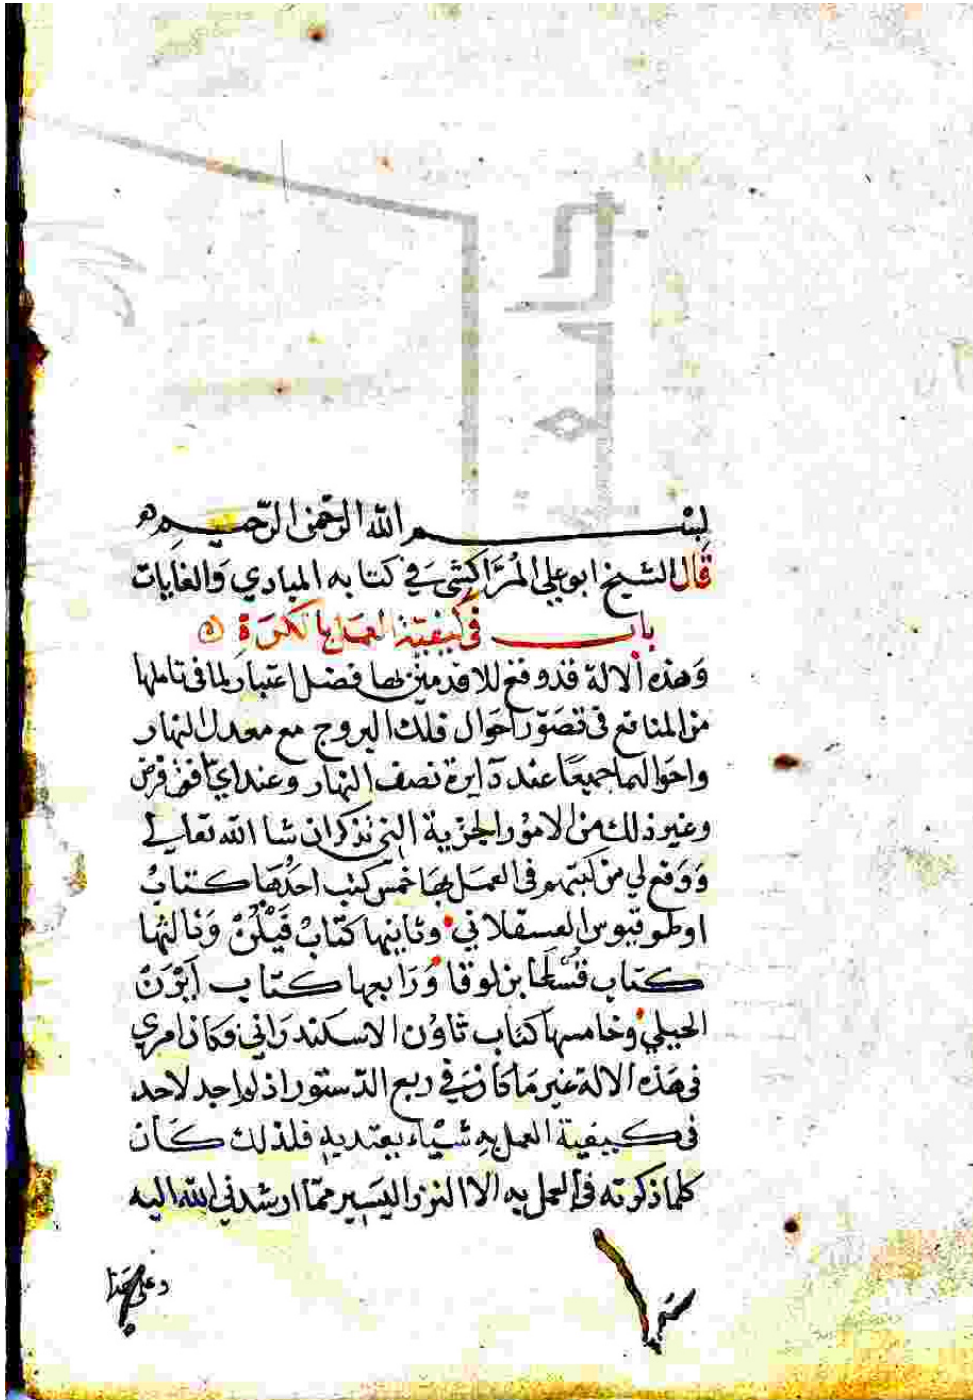 بسم الله الرحمن الرحيم
قال الشيخ ابو علي المُرَّاكشي في كتابه المبادي والغايات
باب في كيفية العمل بالكرة
وهذه الالة قد وقع للاقدمين بها فضل اعتبار لما في تاملها
من المنافع في تصوّر احوال فلك البروج مع معدل النهار
واحوالهما جميعًا عند دايرة نصف النهار وعند ايّ افق فرض
وغير ذلك من الامور الجزية التي نذكر ان شا الله تعالي
ووقع لي من كتبهم في العمل بها خمس كتب احدُها كتابُ
اوطوقيوس العسقلاني وثانيها كتابُ قَيْلُنْ وثالثها
كتاب قُسْطا بن لوقا ورابعها كتاب ابْرَنْ
الحيلي وخامسها كتاب ثاوُن الاسكندراني وكان امري
في هذه الالة غير ما كان في ربع الدستور اذ لم اجد لاحد
في كيفية العمل به شيء يعتد به فلذلك كان
كلما ذكرته في العمل به الا النزر اليسير ممّا ارشدني الله اليه
وعلي هذا